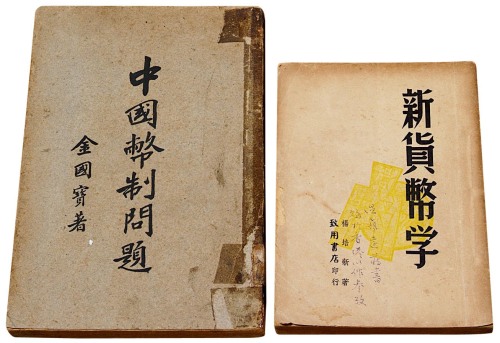 中國幣制問題
金國寶著
新貨幣学
楊培新著
致用書店印行